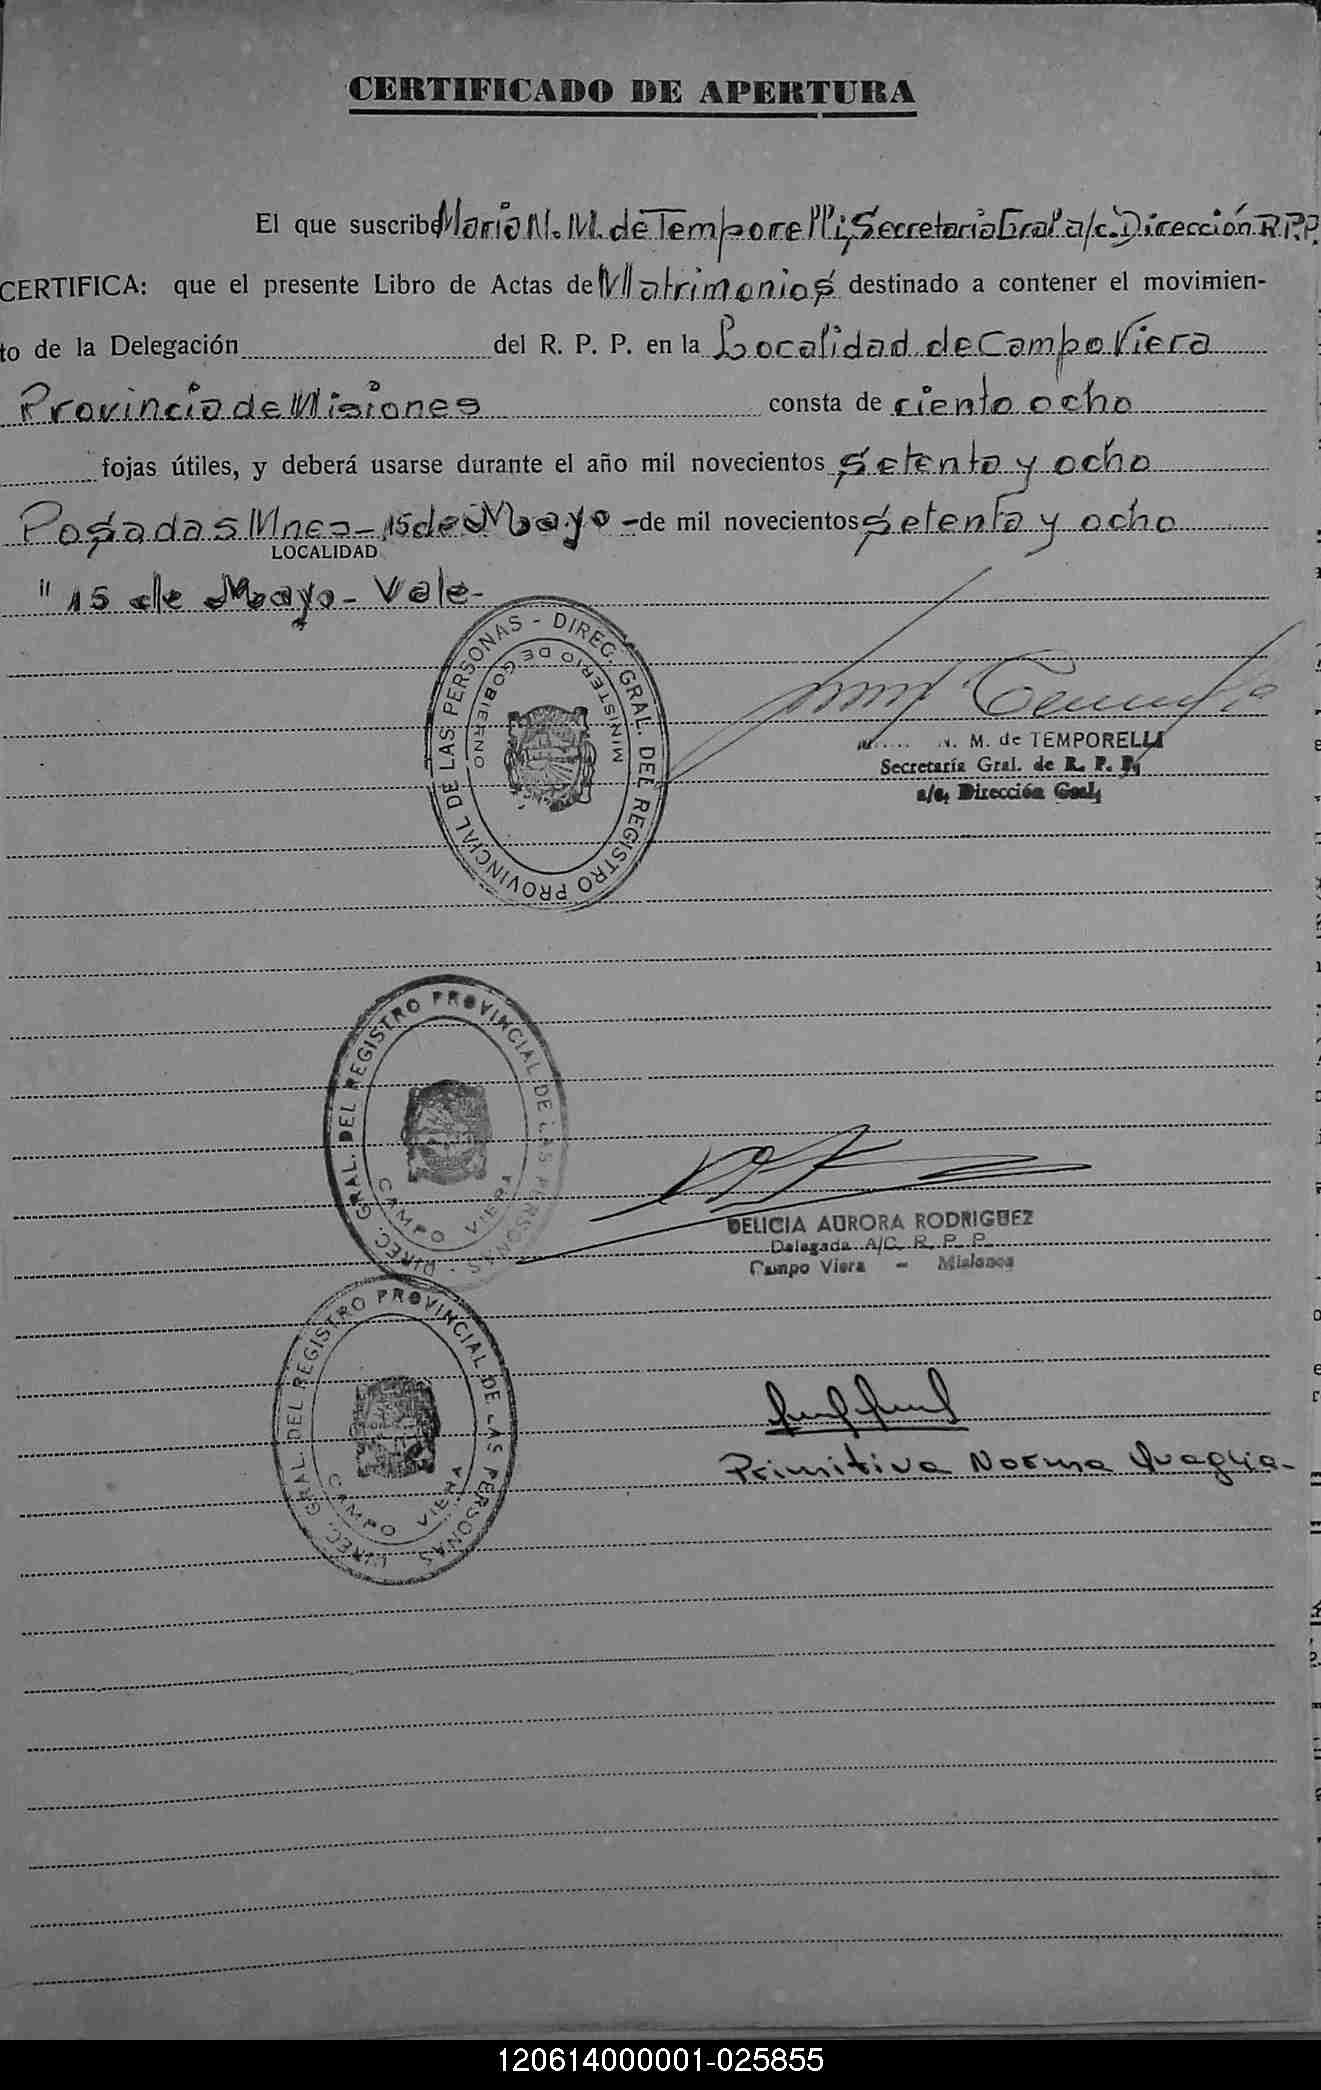 CERTIFICADO DE APERTURA
El que suscribe Maria N. M. de Temporelli, Secretaria Gral a/c. Dirección R.P.P.
CERTIFICA: que el presente Libro de Actas de Matrimonios destinado a contener el movimien-
to de la Delegación del R. P. P. en la Localidad de Campo Viera
Provincia de Misiones consta de ciento ocho
fojas útiles, y deberá usarse durante el año mil novecientos setenta y ocho
Posadas Mnes - 15 de Mayo - de mil novecientos setenta y ocho
LOCALIDAD
" 15 de Mayo - Vale -
DIREC. GRAL. DEL REGISTRO PROVINCIAL DE LAS PERSONAS -
MINISTERIO DE GOBIERNO
N. M. de TEMPORELLI
Secretaría Gral. de R. P. P.
a/c. Dirección Gral.
DIREC. GRAL. DEL REGISTRO PROVINCIAL DE LAS PERSONAS -
CAMPO VIERA
DELICIA AURORA RODRIGUEZ
Delegada A/C. R. P. P.
Campo Viera - Misiones
DIREC. GRAL. DEL REGISTRO PROVINCIAL DE LAS PERSONAS
CAMPO VIERA
Primitiva Norma Quaglia -
120614000001-025855